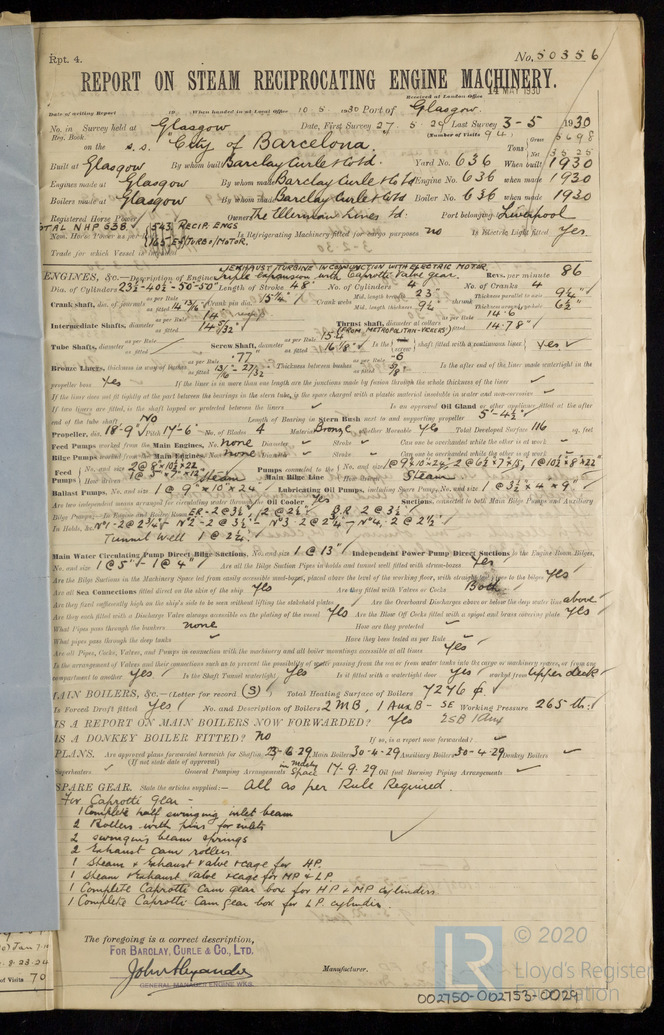 Rpt. 4. No. 50356
REPORT ON STEAM RECIPROCATING ENGINE MACHINERY.
Received at London Office 14 MAY 1930
Date of writing Report 19 When handed in at Local Office 10. 5. 1930 Port of Glasgow.
No. in Survey held at Glasgow Date, First Survey 27. 5. 29 Last Survey 3-5 1930
Reg. Book. (Number of Visits 94)
on the s.s. "City of Barcelona. Tons Gross 5698 Net
Built at Glasgow By whom built Barclay Curle & Co Ld. Yard No. 636 When built 1930
Engines made at Glasgow By whom made Barclay Curle & Co Ld Engine No. 636 when made 1930
Boilers made at Glasgow By whom made Barclay Curle & Co Ld Boiler No. 636 when made 1930
Registered Horse Power Owners The Ellerman Lines Ld: Port belonging to Liverpool
TOTAL NHP 538 (543 RECIP. ENGS
Nom. Horse Power as per Rule Is Refrigerating Machinery fitted for cargo purposes no Is Electric Light fitted Yes
Trade for which Vessel is intended
ENGINES, &c.—Description of Engines Triple Expansion with Caprotti Valve gear. Revs. per minute 86
EXHAUST TURBINE IN CONJUNCTION WITH ELECTRIC MOTOR
Dia. of Cylinders 23½-40½-50-50 Length of Stroke 48" No. of Cylinders 4 No. of Cranks 4
Crank shaft, dia. of journals as per Rule as fitted 14 13/16" Crank pin dia. 15¼" Crank webs Mid. length breadth 23" Mid. length thickness 9¼" shrunk Thickness parallel to axis 9¼" Thickness around eyehole 6½"
Intermediate Shafts, diameter as per Rule as fitted 14 5/32" Thrust shaft, diameter at collars as per Rule 14.6 as fitted 14.78"
(FROM METROPOLITAN-VICKERS)
Tube Shafts, diameter as per Rule as fitted Screw Shaft, diameter as per Rule 15.4 as fitted 16⅛" Is the screw shaft fitted with a continuous liner Yes
Bronze Liners, thickness in way of bushes as per Rule .77 as fitted Thickness between bushes as per Rule .6 as fitted Is the after end of the liner made watertight in the
propeller boss Yes If the liner is in more than one length are the junctions made by fusion through the whole thickness of the liner
If the liner does not fit tightly at the part between the bearings in the stern tube, is the space charged with a plastic material insoluble in water and non-corrosive
If two liners are fitted, is the shaft lapped or protected between the liners Is an approved Oil Gland or other appliance fitted at the after
end of the tube shaft No Length of Bearing in Stern Bush next to and supporting propeller 5'-4½"
Propeller, dia. 18'-9" Pitch 17'-6" No. of Blades 4 Material Bronze whether Moveable Yes Total Developed Surface 116 sq. feet
Feed Pumps worked from the Main Engines, No. none Diameter Stroke Can one be overhauled while the other is at work
Bilge Pumps worked from the Main Engines, No. none Diameter Stroke Can one be overhauled while the other is at work
Feed Pumps No. and size How driven Steam Pumps connected to the Main Bilge Line No. and size How driven Steam
Ballast Pumps, No. and size 1 @ 9" x 10" x 24" Lubricating Oil Pumps, including Spare Pump, No. and size 1 @ 3½ x 4 x 9"
Are two independent means arranged for circulating water through the Oil Cooler Yes Suctions, connected to both Main Bilge Pumps and Auxiliary
Bilge Pumps;—In Engine and Boiler Room ER-2 @ 3½, 2 @ 2½" BR 2 @ 3½
In Holds, &c. No 1 -2 @ 2¾"- No 2 -2 @ 3½"- No 3 2 @ 2¾- No 4. 2 @ 2½"
Tunnel Well 1 @ 2½.
Main Water Circulating Pump Direct Bilge Suctions, No. and size 1 @ 13" Independent Power Pump Direct Suctions to the Engine Room Bilges,
No. and size 1 @ 5" & 1 @ 4" Are all the Bilge Suction Pipes in holds and tunnel well fitted with strum-boxes Yes
Are the Bilge Suctions in the Machinery Space led from easily accessible mud-boxes, placed above the level of the working floor, with straight tail pipes to the bilges Yes
Are all Sea Connections fitted direct on the skin of the ship Yes Are they fitted with Valves or Cocks Both
Are they fixed sufficiently high on the ship's side to be seen without lifting the stokehold plates Are the Overboard Discharges above or below the deep water line above
Are they each fitted with a Discharge Valve always accessible on the plating of the vessel Yes Are the Blow Off Cocks fitted with a spigot and brass covering plate Yes
What Pipes pass through the bunkers none How are they protected
What pipes pass through the deep tanks Have they been tested as per Rule
Are all Pipes, Cocks, Valves, and Pumps in connection with the machinery and all boiler mountings accessible at all times Yes
Is the arrangement of Valves and their connections such as to prevent the possibility of water passing from the sea or from water tanks into the cargo or machinery spaces, or from one
compartment to another Yes Is the Shaft Tunnel watertight Yes Is it fitted with a watertight door Yes worked from Upper deck
MAIN BOILERS, &c.—(Letter for record (S)) Total Heating Surface of Boilers 7276
Is Forced Draft fitted Yes No. and Description of Boilers 2 MB, 1 Aux B - SE Working Pressure 265 lb:
IS A REPORT ON MAIN BOILERS NOW FORWARDED? Yes 2SB 1 Aux
IS A DONKEY BOILER FITTED? No If so, is a report now forwarded?
PLANS. Are approved plans forwarded herewith for Shafting 23-6-29 Main Boilers 30-4-29 Auxiliary Boilers 30-4-29 Donkey Boilers
(If not state date of approval)
Superheaters General Pumping Arrangements in Mchy Space 17.9.29 Oil fuel Burning Piping Arrangements
SPARE GEAR. State the articles supplied:— All as per Rule Required.
For Caprotti Gear -
1 Complete half swinging inlet beam
2 Rollers with pins for inlets
2 swinging beam springs
2 Exhaust cam rollers
1 Steam & Exhaust Valve & cage for HP.
1 Steam & Exhaust Valve & cage for MP & LP
1 Complete Caprotti Cam gear box for HP & MP cylinders
1 Complete Caprotti Cam gear box for LP cylinder.
The foregoing is a correct description,
FOR BARCLAY, CURLE & CO., LTD.
John Alexander Manufacturer.
GENERAL MANAGER ENGINE WKS.
70
© 2020
LR Lloyd's Register
Foundation
002750-002753-0029